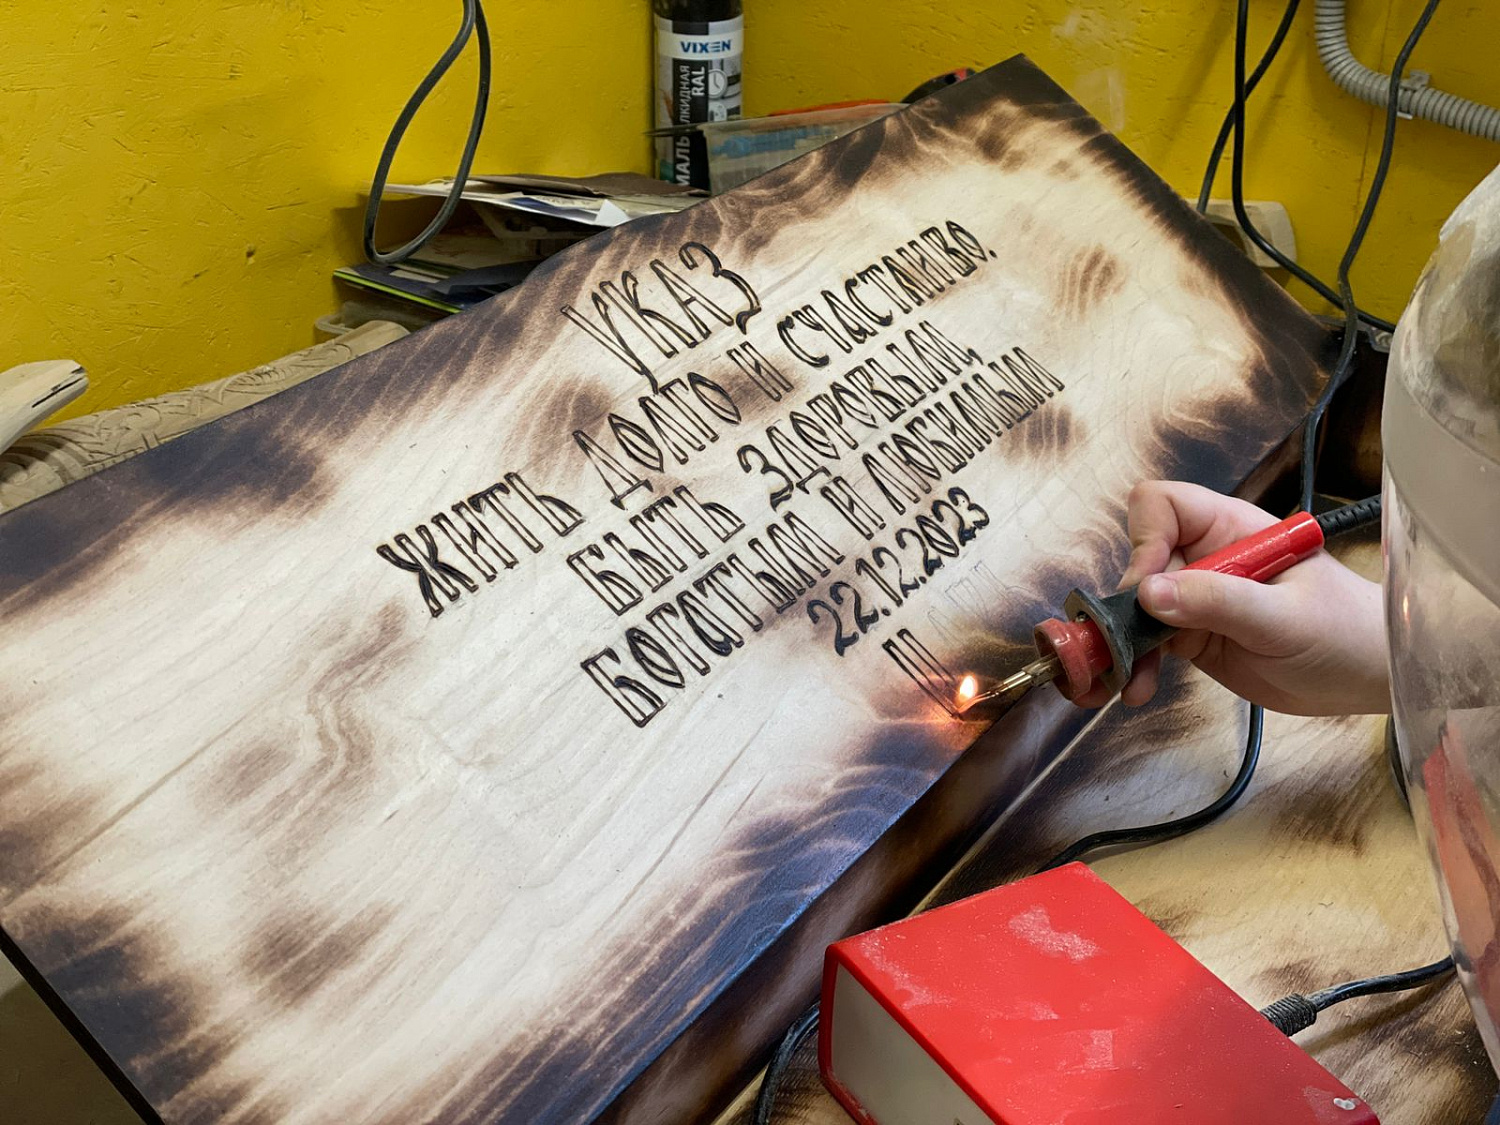 VIXEN
RAL
УКАЗ
ЖИТЬ ДОЛГО И СЧАСТЛИВО.
БЫТЬ ЗДОРОВЫМ,
БОГАТЫМ И ЛЮБИМЫМ
22.12.2023